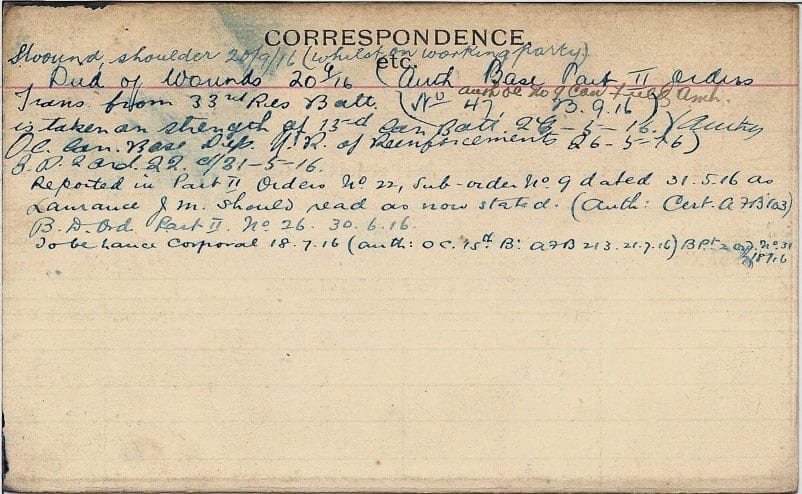 CORRESPONDENCE,
etc.
S. wound, shoulder 20/9/16 (whilst on working party)
Died of Wounds 20/9/16 (Auth Base Part II Orders
auth OC No 9 Can Field Amb.
Trans. from 33rd Res Batt. (No 47 B.9.16)
is taken on strength of Can Batt. 26-5-16. (Authy
O.C. Can. Base Dep. of Reinforcements 26-5-16)
B.P. 2 Ord. 22. d/31-5-16.
Reported in Part II Orders No 22, Sub-order No 9 dated 31.5.16 as
Laurance J M. should read as now stated. (Auth: Cert A.F.B 103)
B. D. Ord. Part II. No 26. 30.6.16.
To be Lance Corporal 18.7.16 (auth: O C. 15th Bn A F B 213. 21.7.16) B Pt 2 No 31